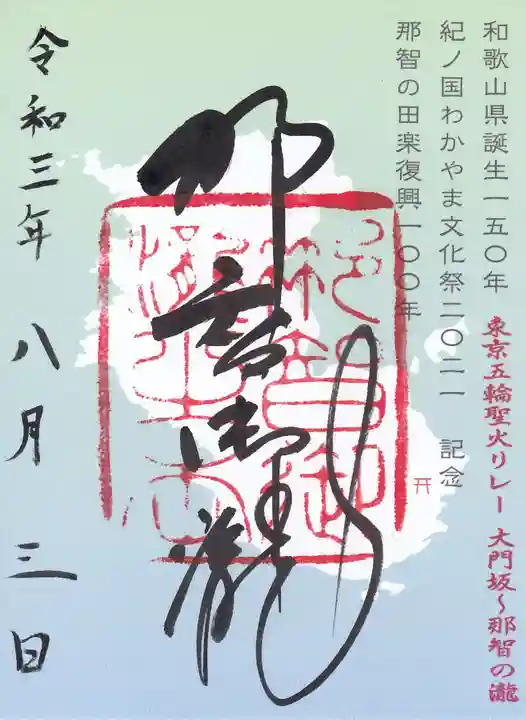 和歌山県誕生一五〇年
紀ノ国わかやま文化祭二〇二一 記念
那智の田楽復興一〇〇年
東京五輪聖火リレー 大門坂〜那智の瀧
那智御瀧
令和三年 八月 三日